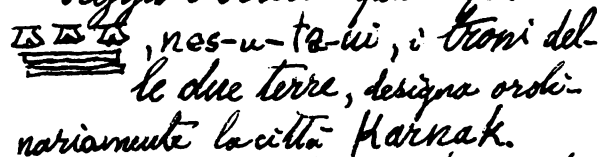 , nes-u-ta-ui, i troni del-
le due terre, designa ordi-
nariamente la città Karnak.